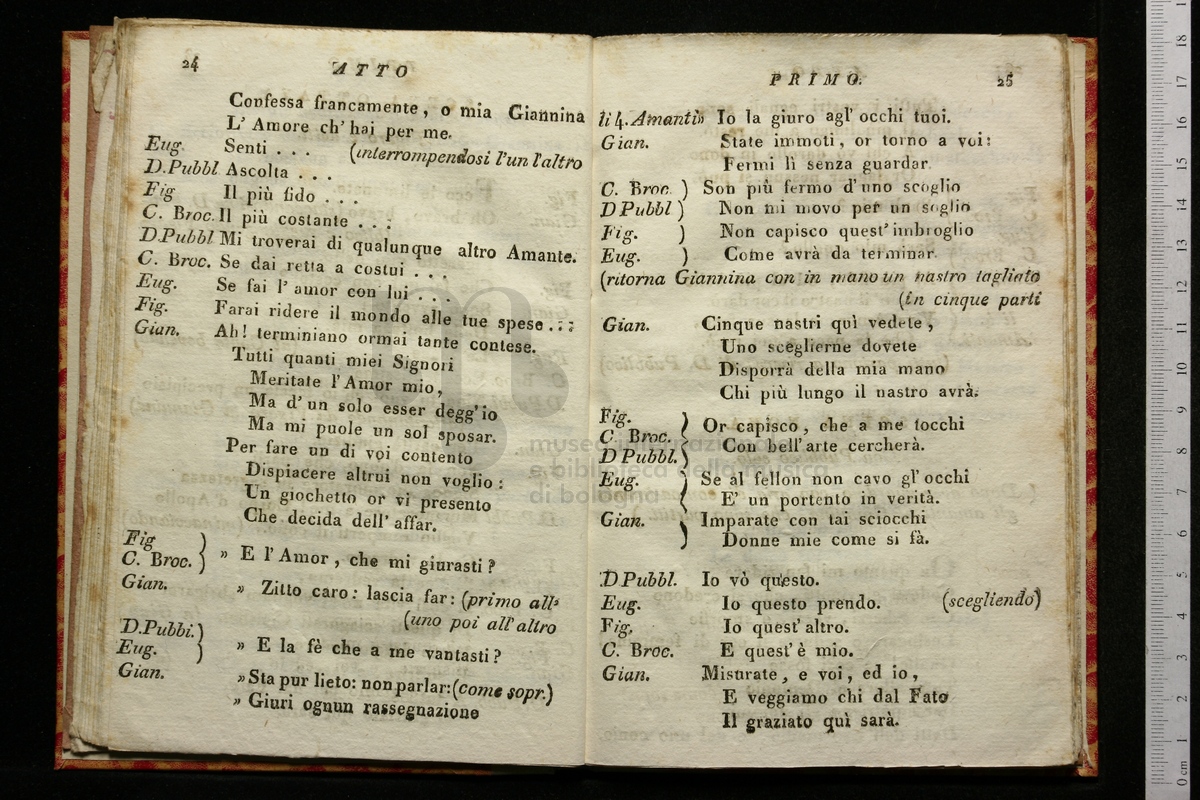 24
ATTO
Confessa francamente, o mia Giannina
L' Amore ch' hai per me.
Eug. Senti . . . (interrompendosi l'un l'altro
D.Pubbl Ascolta . . .
Fig Il più fido . . .
C. Broc. Il più costante . . .
D.Pubbl Mi troverai di qualunque altro Amante.
C. Broc. Se dai retta a costui . . .
Eug. Se fai l' amor con lui . . .
Fig. Farai ridere il mondo alle tue spese . . :
Gian. Ah! terminiano ormai tante contese.
Tutti quanti miei Signori
Meritate l'Amor mio,
Ma d' un solo esser degg' io
Ma mi puole un sol sposar.
Per fare un di voi contento
Dispiacere altrui non voglio :
Un giochetto or vi presento
Che decida dell' affar.
Fig )
C. Broc. ) » E l' Amor, che mi giurasti?
Gian. » Zitto caro: lascia far: (primo all'
(uno poi all' altro
D.Pubbi.)
Eug. ) » E la fè che a me vantasti?
Gian. » Sta pur lieto: non parlar: (come sopr.)
» Giuri ognun rassegnazione
PRIMO.
25
li 4. Amanti» Io la giuro agl' occhi tuoi.
Gian. State immoti, or torno a voi:
Fermi lì senza guardar
C. Broc. ) Son più fermo d' uno scoglio
D Pubbl ) Non mi movo per un soglio
Fig. ) Non capisco quest' imbroglio
Eug. ) Come avrà da terminar.
(ritorna Giannina con in mano un nastro tagliato
(in cinque parti
Gian. Cinque nastri quì vedete,
Uno sceglierne dovete
Disporrà della mia mano
Chi più lungo il nastro avrà.
Fig. )
C. Broc. ) Or capisco, che a me tocchi
D Pubbl. ) Con bell' arte cercherà.
Eug. ( Se al fellon non cavo gl' occhi
E' un portento in verità.
Gian. ) Imparate con tai sciocchi
Donne mie come si fà.
D Pubbl. Io vò questo.
Eug. Io questo prendo. (scegliendo)
Fig. Io quest' altro.
C. Broc. E quest' è mio.
Gian. Misurate, e voi, ed io,
E veggiamo chi dal Fato
Il graziato quì sarà.
museo internazionale
e biblioteca della musica
di bologna
0 cm 1 2 3 4 5 6 7 8 9 10 11 12 13 14 15 16 17 18